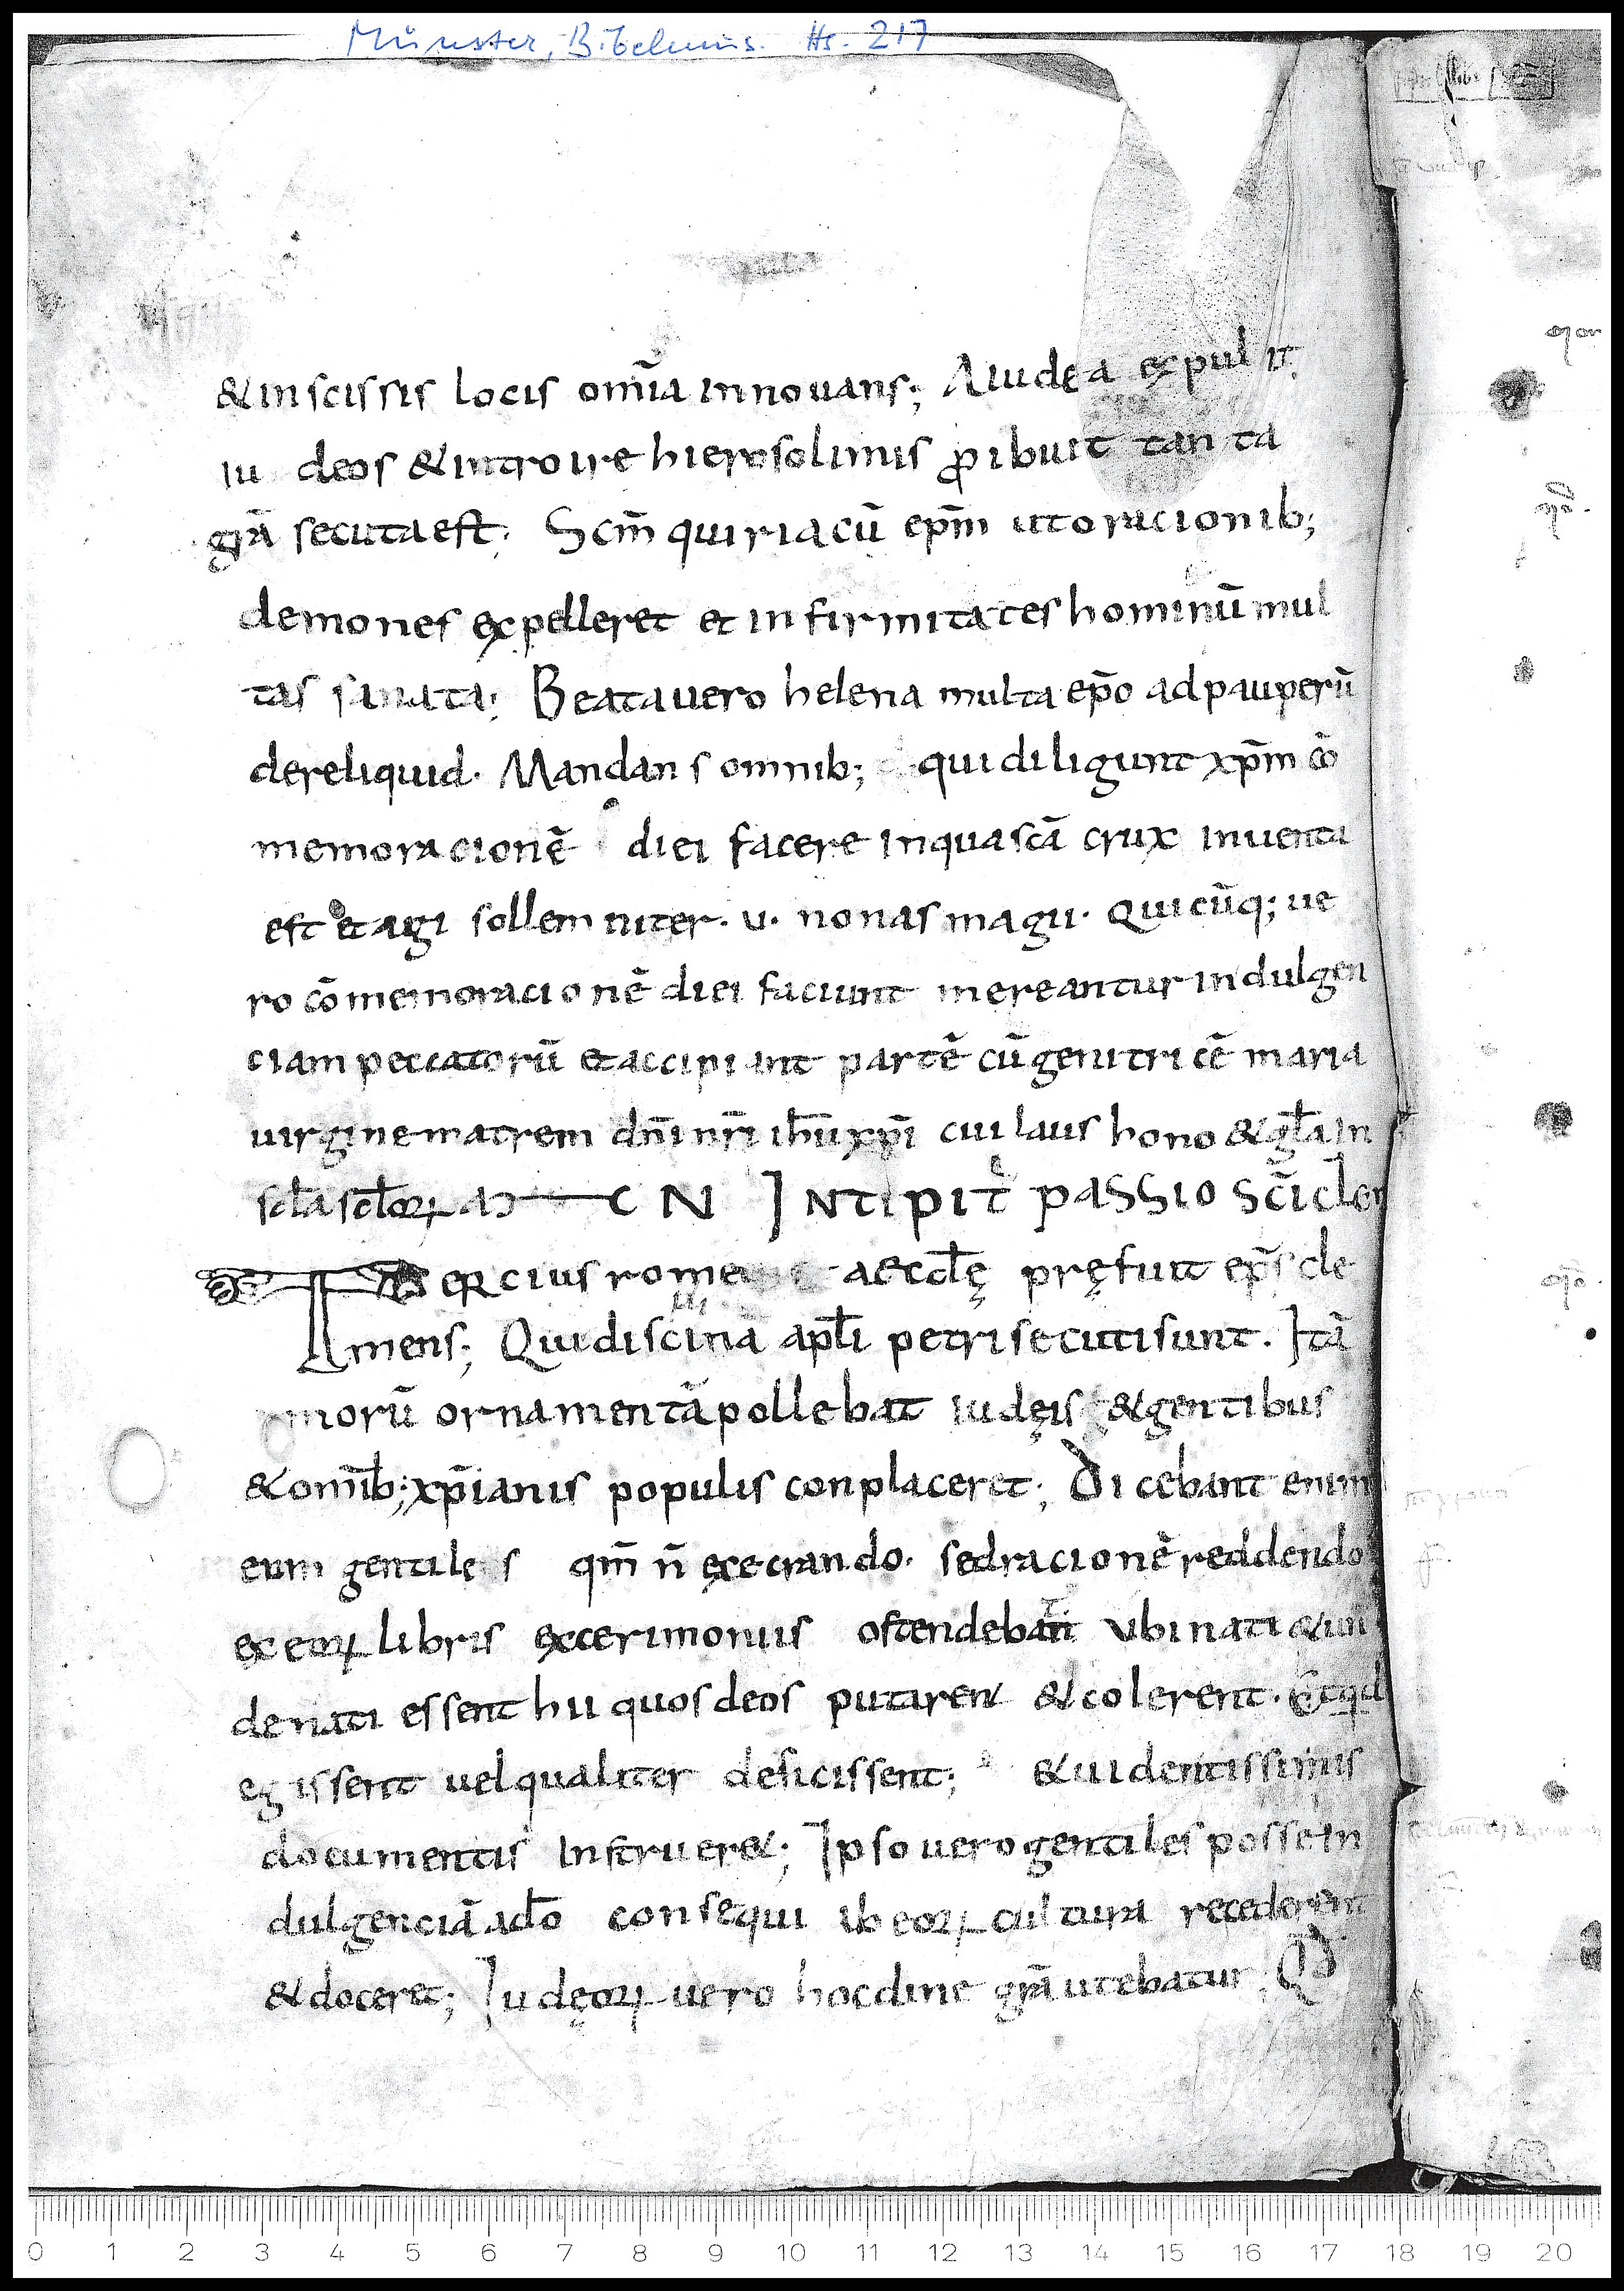 Münster, Bibelmus. Hs. 217
& in scissis locis om̄ia innouans; A iudea expulit
iu deos & introire hierosolimis ꝓibuit tanta
grā secuta est; Scm̄ quiriacū ep̄m ut oracionib;
demones expelleret et infirmitates hominū mul
tas sanata; Beata uero helena multa ep̄o ad pauperū
dereliquid. Mandans omnib; qui diligunt xp̄m cō
memoracionē diei facere in qua scā crux inuenta
est et agi sollemniter. u. nonas magii. Quicūq; ue
ro cōmemoracionē diei faciunt mereantur indulgen
ciam peccatorū et accipiant partē cū genitricē maria
uirgine matrem dn̄i nr̄i ih̄u xp̄i cui laus hono & gl̄a in
scl̄a scl̄oꝝ a CN Intipit passio sc̄i cler
T ercius rome aeccl̄ę pręfuit ep̄s cle
mens; Qui discinā apl̄i petri secuti sunt. Itā
morū ornamentā pollebat iudęis & gentibus
& om̄ib; xp̄ianis populis conplaceret; Dicebant enim
eum gentiles qm̄ n̄ execrando. sed racionē reddendo
ex eoꝝ libris excerimoniis ostendebat ubi nati & un
de nati essent hii quos deos putaren & colerent. Et qd
egissent uel qualiter deficissent; & uidentissimis
documentis instruer&; Ipso uero gentiles posse in
dulgenciā ad̄o consequi ib eoꝝ cultura recederent
& doceret; Iudęoꝝ uero hocdine grā utebatur; Qd
0 1 2 3 4 5 6 7 8 9 10 11 12 13 14 15 16 17 18 19 20